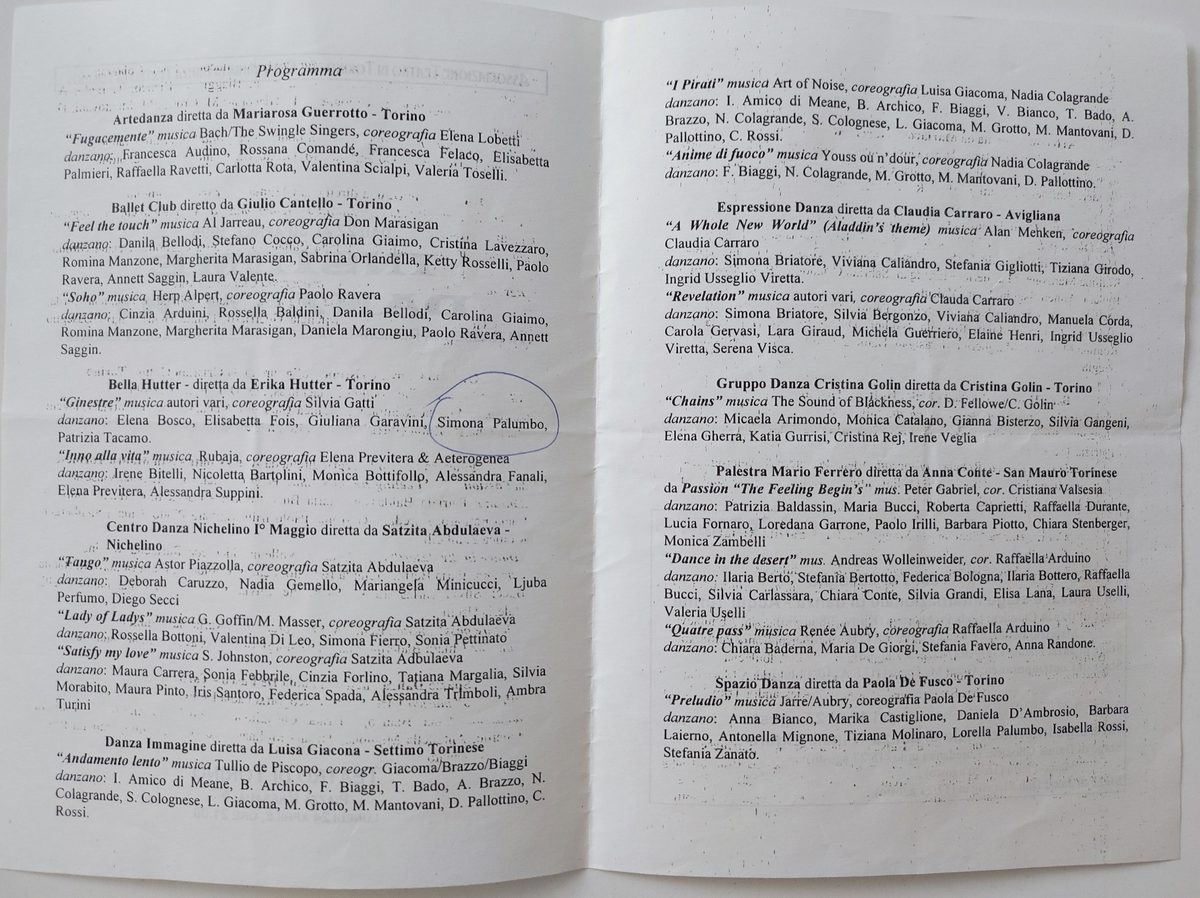 Programma
Artedanza diretta da Mariarosa Guerrotto - Torino
“Fugacemente” musica Bach/The Swingle Singers, coreografia Elena Lobetti
danzano: Francesca Audino, Rossana Comandé, Francesca Felaco, Elisabetta
Palmieri, Raffaella Ravetti, Carlotta Rota, Valentina Scialpi, Valeria Toselli.
Ballet Club diretto da Giulio Cantello - Torino
“Feel the touch” musica Al Jarreau, coreografia Don Marasigan
danzano: Danila Bellodi, Stefano Cocco, Carolina Giaimo, Cristina Lavezzaro,
Romina Manzone, Margherita Marasigan, Sabrina Orlandella, Ketty Rosselli, Paolo
Ravera, Annett Saggin, Laura Valente.
“Soho” musica Herp Alpert, coreografia Paolo Ravera
danzano: Cinzia Arduini, Rossella Baldini, Danila Bellodi, Carolina Giaimo,
Romina Manzone, Margherita Marasigan, Daniela Marongiu, Paolo Ravera, Annett
Saggin.
Bella Hutter - diretta da Erika Hutter - Torino
“Ginestre” musica autori vari, coreografia Silvia Gatti
danzano: Elena Bosco, Elisabetta Fois, Giuliana Garavini, Simona Palumbo,
Patrizia Tacamo.
“Inno alla vita” musica Rubaja, coreografia Elena Previtera & Aeterogenea
danzano: Irene Bitelli, Nicoletta Bartolini, Monica Bottifollo, Alessandra Fanali,
Elena Previtera, Alessandra Suppini.
Centro Danza Nichelino I° Maggio diretta da Satzita Abdulaeva -
Nichelino
“Tango” musica Astor Piazzolla, coreografia Satzita Abdulaeva
danzano: Deborah Caruzzo, Nadia Gemello, Mariangela Minicucci, Ljuba
Perfumo, Diego Secci
“Lady of Ladys” musica G. Goffin/M. Masser, coreografia Satzita Abdulaeva
danzano: Rossella Bottoni, Valentina Di Leo, Simona Fierro, Sonia Pettinato
“Satisfy my love” musica S. Johnston, coreografia Satzita Adbulaeva
danzano: Maura Carrera, Sonia Febbrile, Cinzia Forlino, Tatiana Margalia, Silvia
Morabito, Maura Pinto, Iris Santoro, Federica Spada, Alessandra Trimboli, Ambra
Turini
Danza Immagine diretta da Luisa Giacona - Settimo Torinese
“Andamento lento” musica Tullio de Piscopo, coreogr. Giacoma/Brazzo/Biaggi
danzano: I. Amico di Meane, B. Archico, F. Biaggi, T. Bado, A. Brazzo, N.
Colagrande, S. Colognese, L. Giacoma, M. Grotto, M. Mantovani, D. Pallottino, C.
Rossi.
“I Pirati” musica Art of Noise, coreografia Luisa Giacoma, Nadia Colagrande
danzano: I. Amico di Meane, B. Archico, F. Biaggi, V. Bianco, T. Bado, A.
Brazzo, N. Colagrande, S. Colognese, L. Giacoma, M. Grotto, M. Mantovani, D.
Pallottino, C. Rossi.
“Anime di fuoco” musica Youss ou n’dour, coreografia Nadia Colagrande
danzano: F. Biaggi, N. Colagrande, M. Grotto, M. Mantovani, D. Pallottino.
Espressione Danza diretta da Claudia Carraro - Avigliana
“A Whole New World” (Aladdin’s theme) musica Alan Menken, coreografia
Claudia Carraro
danzano: Simona Briatore, Viviana Caliandro, Stefania Gigliotti, Tiziana Girodo,
Ingrid Usseglio Viretta.
“Revelation” musica autori vari, coreografia Clauda Carraro
danzano: Simona Briatore, Silvia Bergonzo, Viviana Caliandro, Manuela Corda,
Carola Gervasi, Lara Giraud, Michela Guerriero, Elaine Henri, Ingrid Usseglio
Viretta, Serena Visca.
Gruppo Danza Cristina Golin diretta da Cristina Golin - Torino
“Chains” musica The Sound of Blackness, cor. D. Fellowe/C. Golin
danzano: Micaela Arimondo, Monica Catalano, Gianna Bisterzo, Silvia Gangeni,
Elena Gherra, Katia Gurrisi, Cristina Rej, Irene Veglia
Palestra Mario Ferrero diretta da Anna Conte - San Mauro Torinese
da Passion “The Feeling Begin’s” mus. Peter Gabriel, cor. Cristiana Valsesia
danzano: Patrizia Baldassin, Maria Bucci, Roberta Caprietti, Raffaella Durante,
Lucia Fornaro, Loredana Garrone, Paolo Irilli, Barbara Piotto, Chiara Stenberger,
Monica Zambelli
“Dance in the desert” mus. Andreas Wolleinweider, cor. Raffaella Arduino
danzano: Ilaria Berto, Stefania Bertotto, Federica Bologna, Ilaria Bottero, Raffaella
Bucci, Silvia Carlassara, Chiara Conte, Silvia Grandi, Elisa Lana, Laura Uselli,
Valeria Uselli
“Quatre pass” musica Renée Aubry, coreografia Raffaella Arduino
danzano: Chiara Baderna, Maria De Giorgi, Stefania Favero, Anna Randone.
Spazio Danza diretta da Paola De Fusco - Torino
“Preludio” musica Jarre/Aubry, coreografia Paola De Fusco
danzano: Anna Bianco, Marika Castiglione, Daniela D’Ambrosio, Barbara
Laierno, Antonella Mignone, Tiziana Molinaro, Lorella Palumbo, Isabella Rossi,
Stefania Zanato.